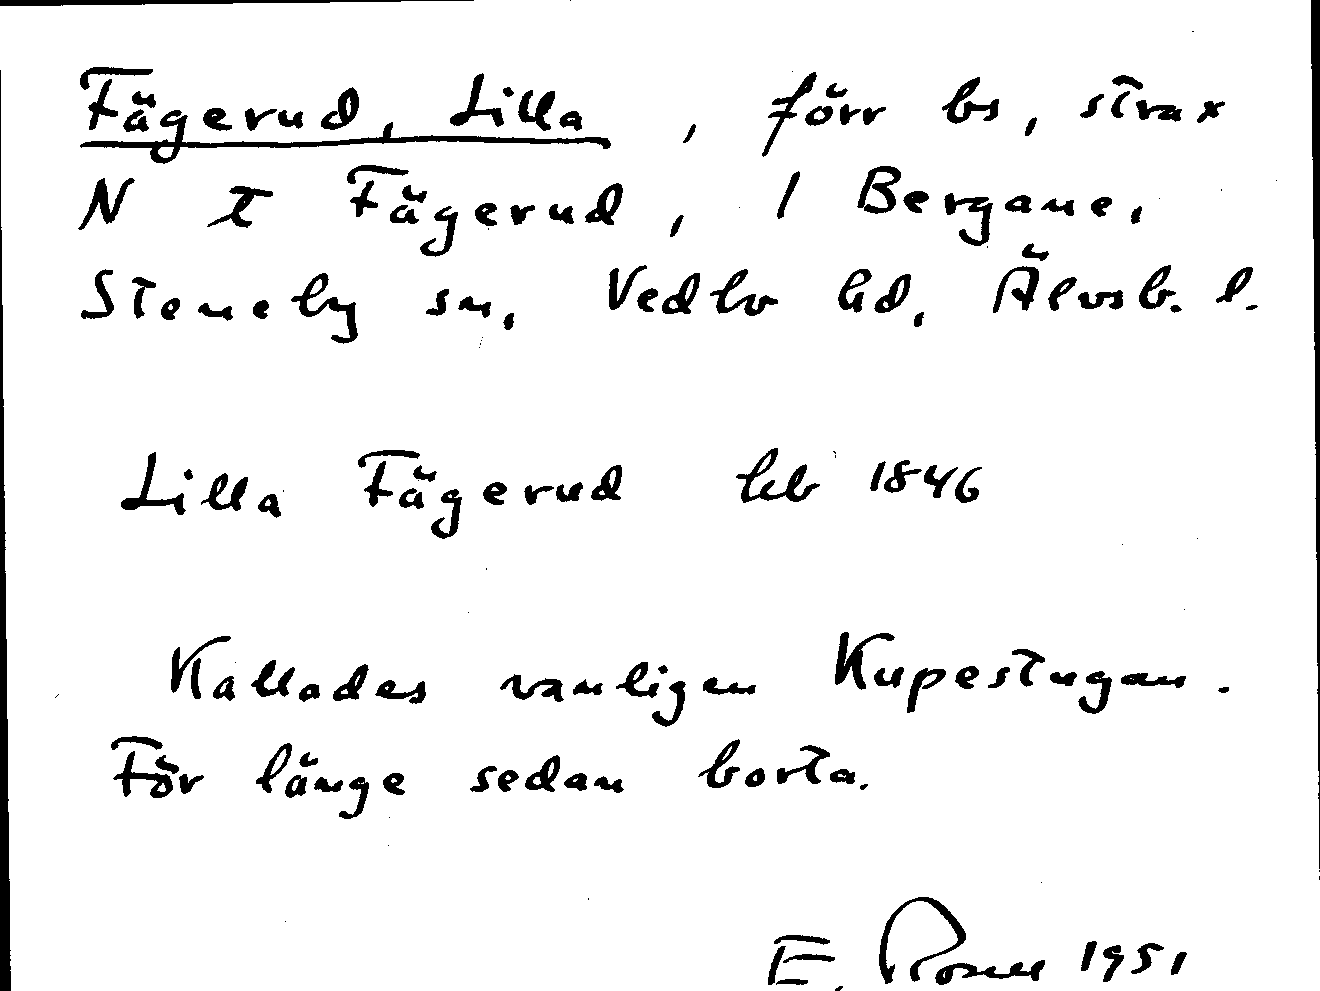 Fägerud, Lilla, förr bs, strax
N t Fägerud, 1 Bergane,
Steneby sn, Vedbo hd, Älvsb. l.
Lilla Fägerud hfl 1846
Kallades vanligen Kupestugan.
För länge sedan borta.
E. Rosell 1951